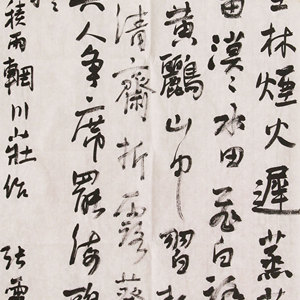 林煙火遲蒸
漠々水田飛白
黃鸝山中習
清齋折露葵
人爭席罷海
積雨輞川山莊作 張